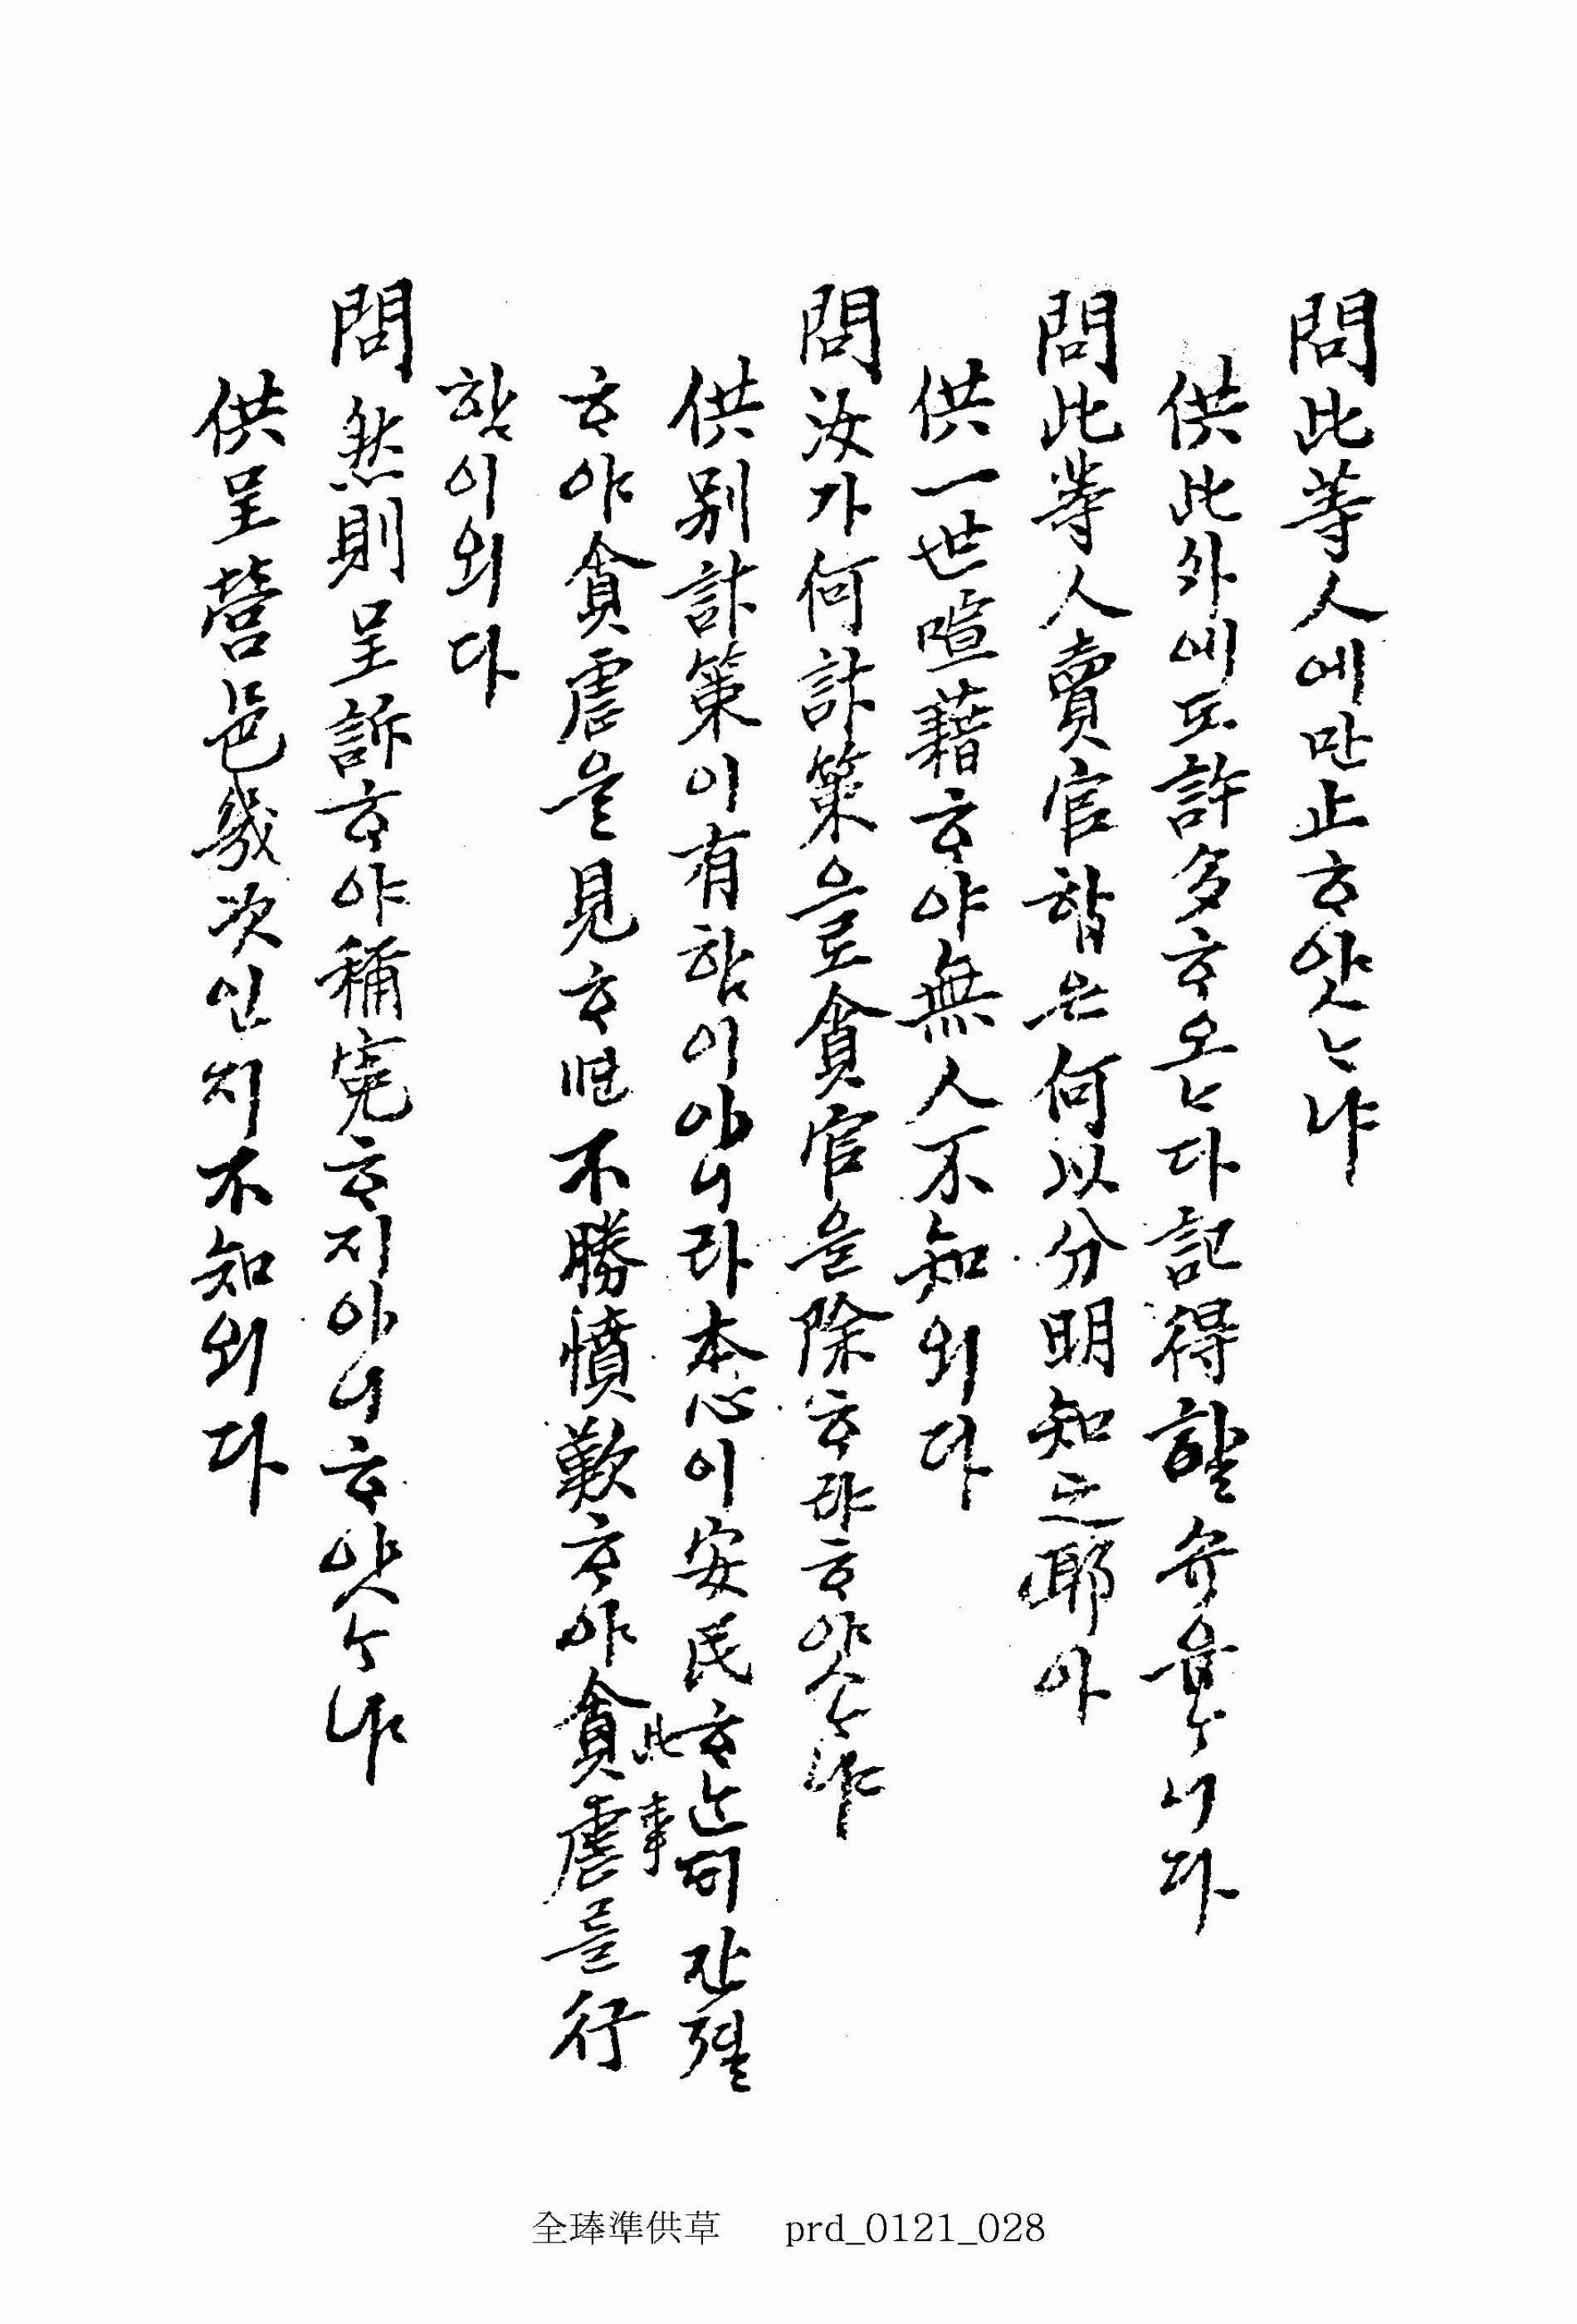 問此等人에만止ᄒᆞ얏ᄂᆞ냐
供此外에도許多ᄒᆞ오ᄂᆞ다記得ᄒᆞᆯ슈읍ᄂᆞ니다
問此等人賣官ᄒᆞᆷ은何以分明知之耶아
供一世喧藉ᄒᆞ야無人不知외다
問汝가何計策으로貪官을除ᄒᆞ랴ᄒᆞ얏ᄂᆞ냐
供別計策이有ᄒᆞᆷ이아니라本心이安民ᄒᆞᄂᆞᆫᄃᆡ간졀
ᄒᆞ야貪虐을見ᄒᆞ면不勝憤歎ᄒᆞ야此事를行
ᄒᆞᆷ이외다
問然則呈訴ᄒᆞ야稱寃ᄒᆞ지아니ᄒᆞ얏ᄂᆞ냐
供呈營邑幾次인지不知외다
全琫準供草 prd_0121_028